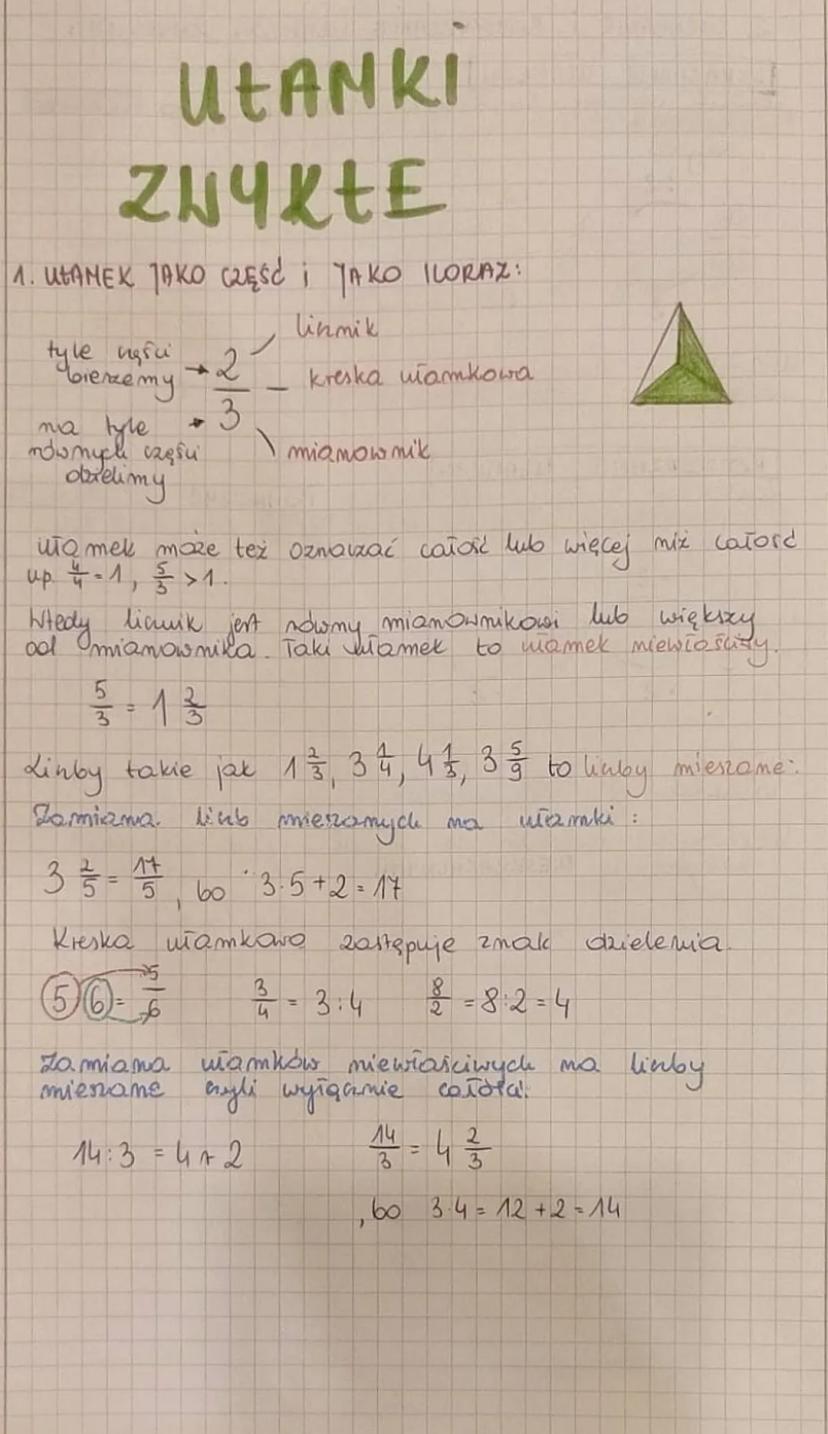 UŁAMKI
ZWYKŁE
1. UŁAMEK JAKO CZĘŚĆ i JAKO ILORAZ:
tyle części
bierzemy → 2/3 — kreska ułamkowa
licznik
na tyle
równych części
dzielimy
mianownik
Ułamek może też oznaczać całość lub więcej niż całość
np. 4/4 = 1, 5/3 > 1.
Wtedy licznik jest równy mianownikowi lub większy
od mianownika. Taki ułamek to ułamek niewłaściwy.
5/3 = 1 2/3
Liczby takie jak 1 2/3, 3 1/4, 4 1/3, 3 5/9 to liczby mieszane:
Zamiana liczb mieszanych na ułamki:
3 2/5 = 17/5, bo 3·5+2=17
Kreska ułamkowa zastępuje znak dzielenia.
5 6 = 5/6 3/4 = 3:4 8/2 = 8:2 = 4
Zamiana ułamków niewłaściwych na liczby
mieszane czyli wyłącznie całości:
14:3 = 4 r 2 14/3 = 4 2/3
, bo 3·4 = 12 + 2 = 14